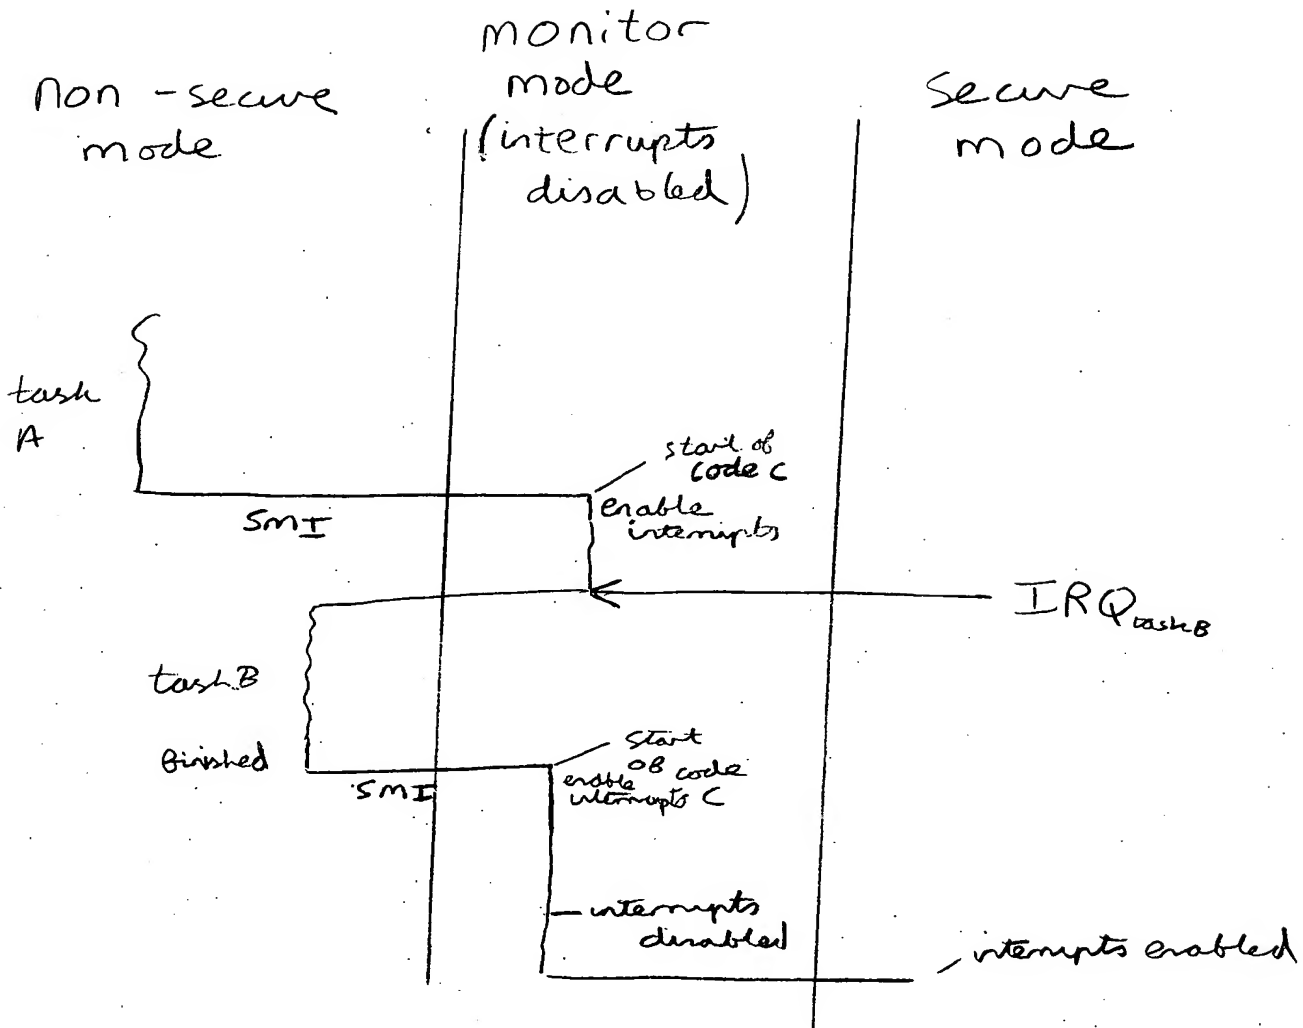 non-secure
mode
monitor
mode
(interrupts
disabled)
secure
mode
task
A
start of
code C
SMI
enable
interrupts
IRQ task B
task B
finished
start
of code
SMI
enable
interrupts C
interrupts
disabled
interrupts enabled